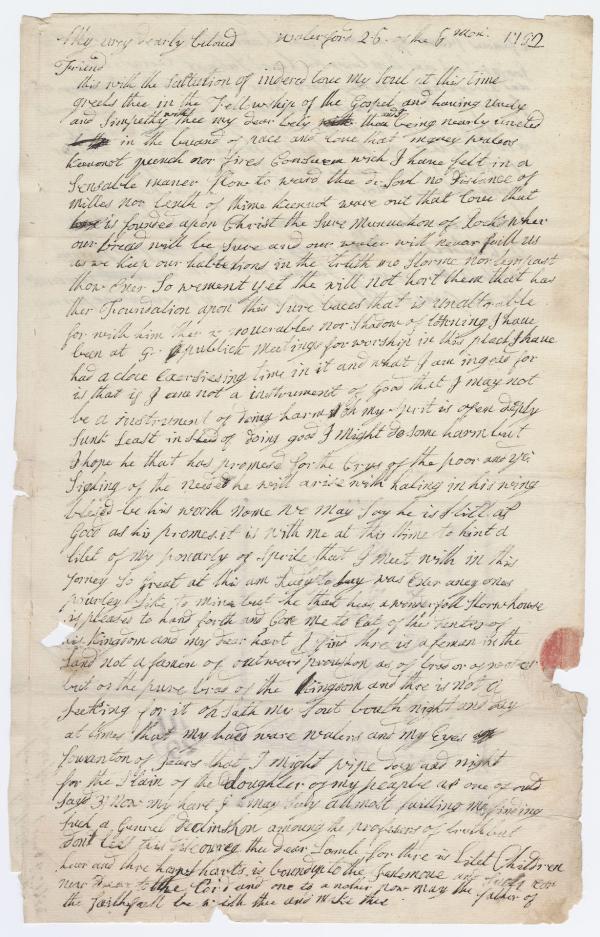 My very dearly beloved Waterford 26 of the 6 Mon: 1752
Friend
this with the Saltution of indered love my Soul at this time
greets thee in the Fellwship of the Gospel and having Unety
and Simpethy with thee my dear bely and thou being nearly uneted
in the bound of peace and love that maney waters
keennot quench nor fires Consuem wich I have felt in a
Sensable maner flow to ward thee de no distance of
milles nor lenth of thime keennot ware out that love that
is founded upon Christ the Sure Munuction of Rocks wher
our bread will be Sure and our water will never faill us
as we keep our habetions in the truth no Storme nor tempast
thow ever So vement yet the will not hort them that has
ther Foundation upon this Sure baces that is unalterable
for with him ther is no verables nor Shadow of torning I have
been at 6 publick Meetings for worship in this place I have
had a close Exerciesing time in it and what I am inged for
is that if I am not a instrument of Good that I may not
be a instrument of doing harm oh my Spirit is ofen deply
Sunk Least in Sted of doing good I might do Some harm but
I hope he that has promesed for the Crys of the poor and the
Sighing of the he will arise with haling in his wing
blesed be his worth Name we may Say he is Still as
Good as his promes it is with me at this time to hint a
litel of my poverty of Sprite that I meet with in this
Jorney So Great at this am Redy to Say was Ever aney ones
like to mine but he that has a wonderfoll Storwhouse
is pleased to hand forth and Gove me to Eat of the
his Kingdom and my dear hart I find thre is a femen in the
Land not a famen of outward provision as of bred or of
but of the pure bred of the Kingdom and thre is not a
Seeking for it oh Sath my Soul bouth night and day
at times that my haed ware waters and my Eyes
fowanton of tears that I might wipe day and night
for the Slain of the doughter of my people as one of ould
Sayd Now my hart I may Say allmost failling me finding
Such a Genrel declinshon amoung the profesors of truth but
dont let this discoureg thee dear Lamb for thre is Litel Children
hear and thre harts is boundup to the and
near dear to the Lord and one to a nother now may the Father of
the faithfull be with thee and make thee